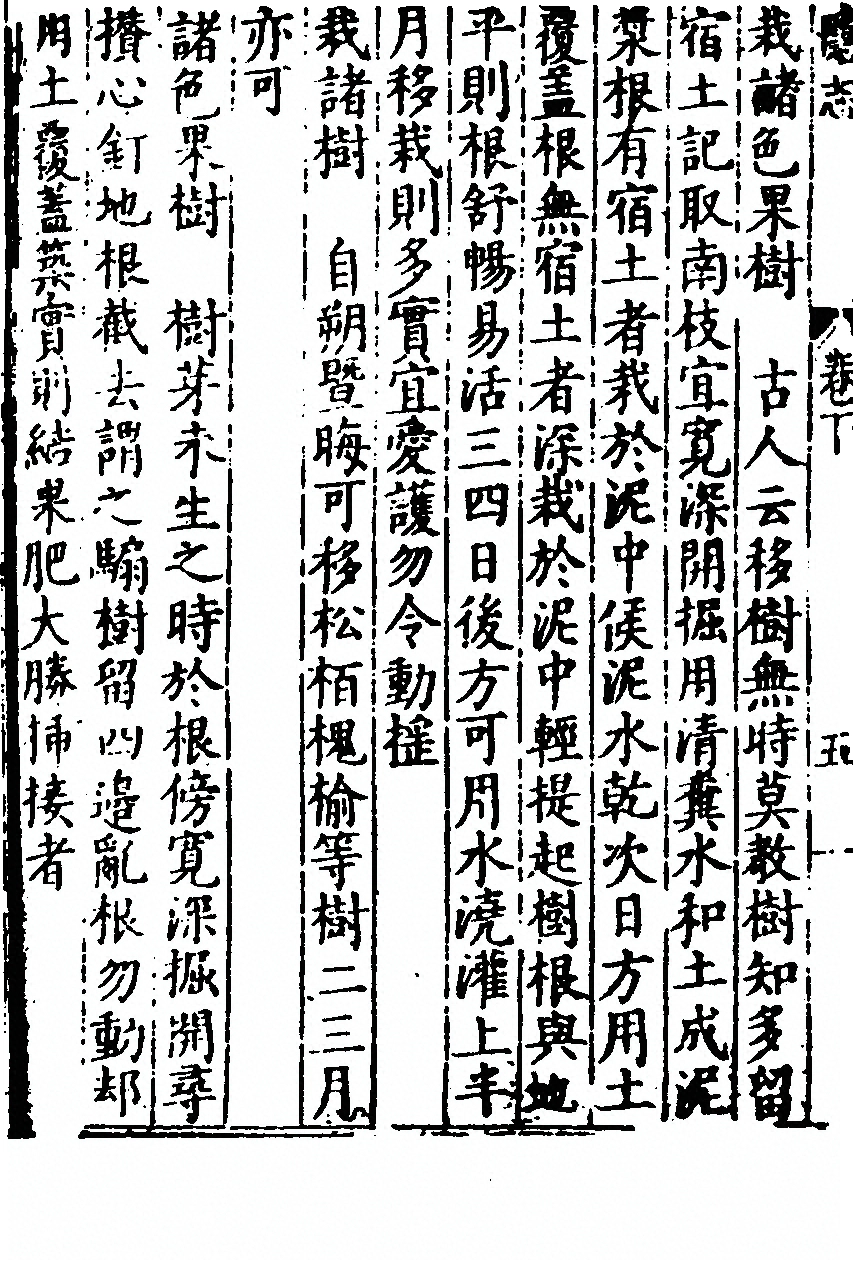 隱志 卷下 五
栽諸色果樹　古人云移樹無時莫敎樹知多留
宿土記取南枝宜寬深開掘用清糞水和土成泥
漿根有宿土者栽於泥中俟泥水乾次日方用土
覆盖根無宿土者深栽於泥中輕提起樹根與地
平則根舒暢易活三四日後方可用水澆灌上半
月移栽則多實宜愛護勿令動搖
栽諸樹　自朔暨晦可移松栢槐榆等樹二三月
亦可
諸色果樹　樹芽未生之時於根傍寬深掘開尋
攢心釘地根截去謂之騸樹留四邉亂根勿動却
用土覆蓋築實則結果肥大勝揷接者